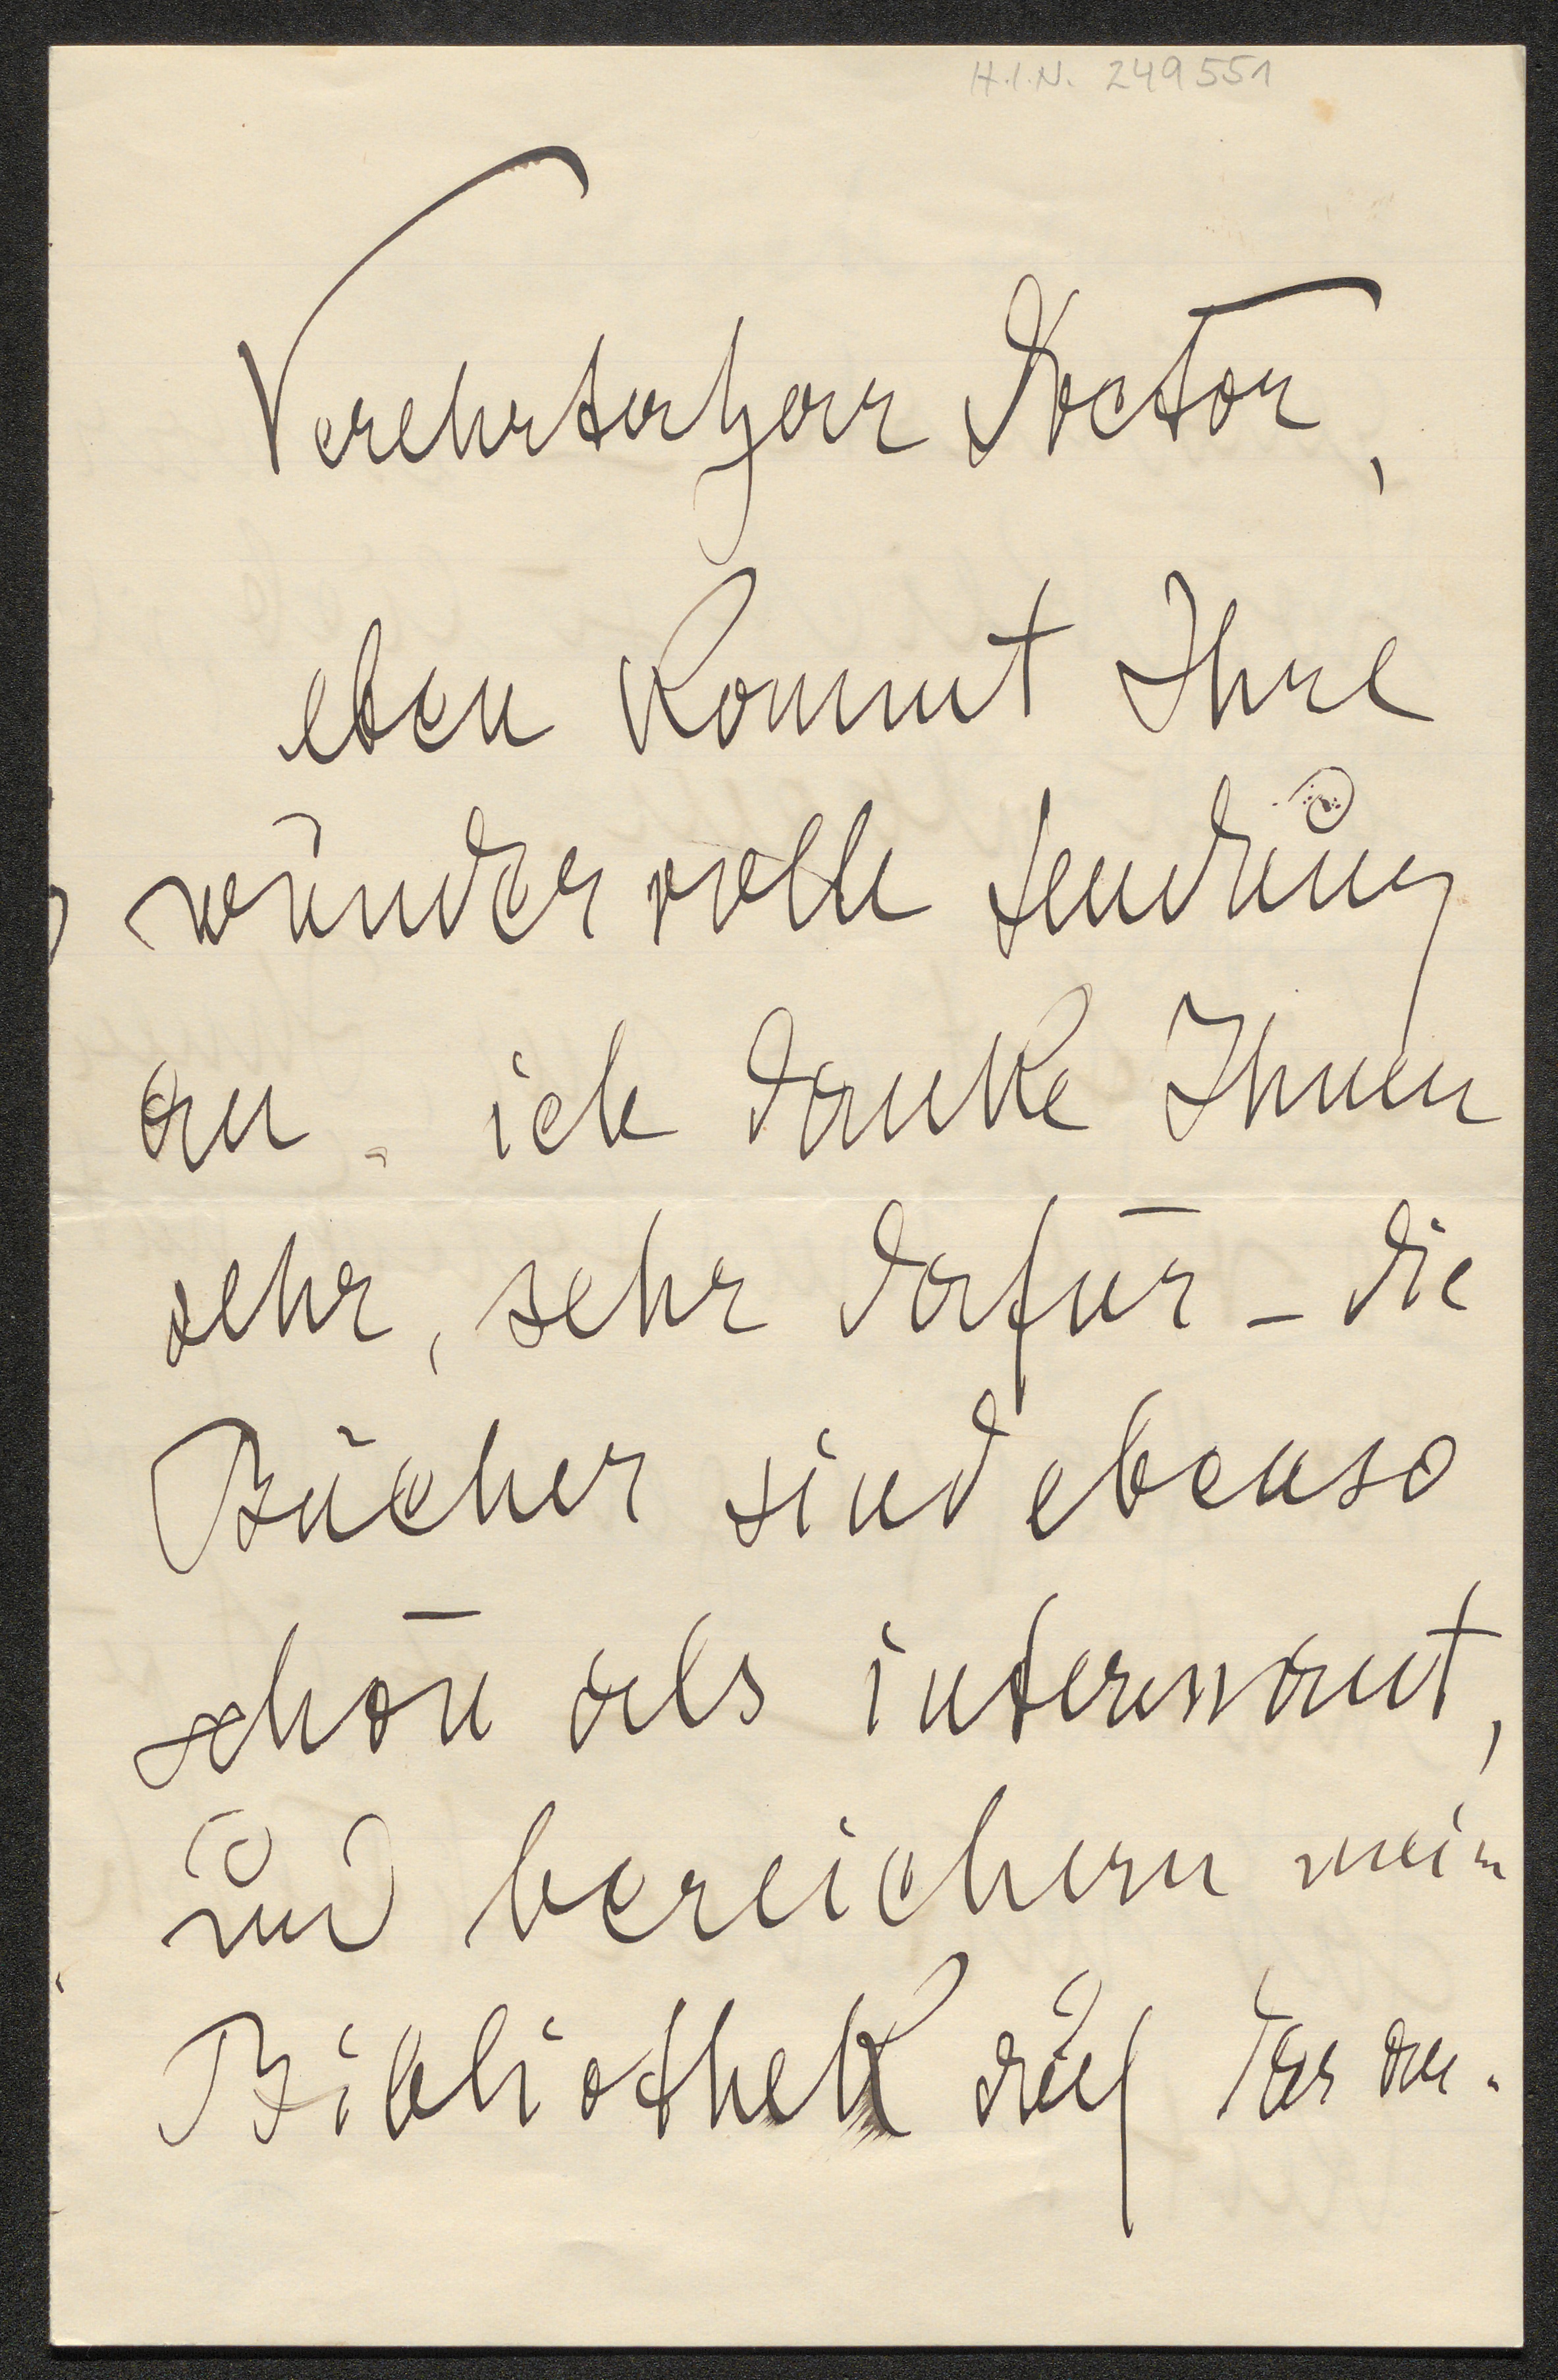 H.I.N. 249551
Verehrter Herr Doctor,
eben kommt Ihre
wundervolle Sendung
an - ich danke Ihnen
sehr, sehr dafür - die
Bücher sind ebenso
schön als interessant,
und bereichern meine
Bibliothek auf das an-